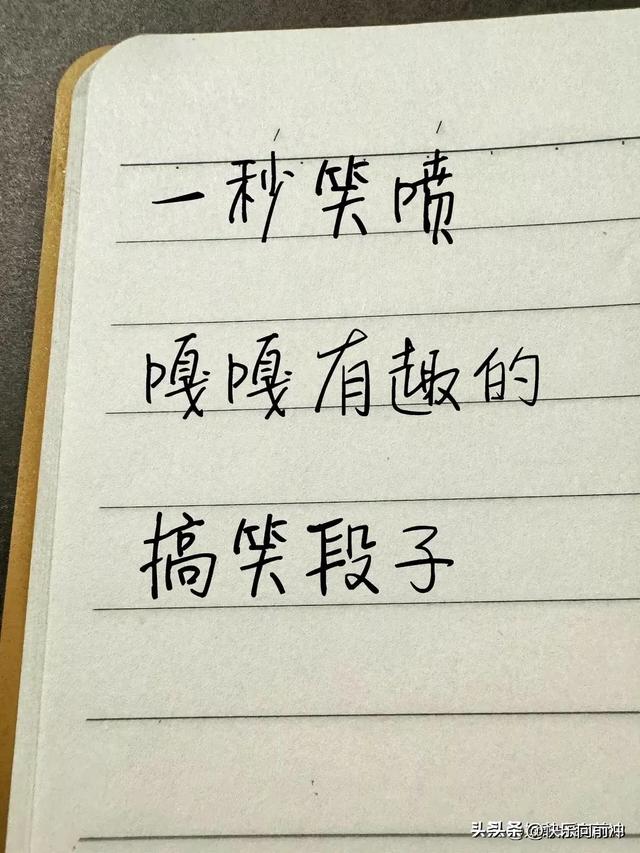 一秒笑喷
嘎嘎有趣的
搞笑段子
头条@快乐向前冲